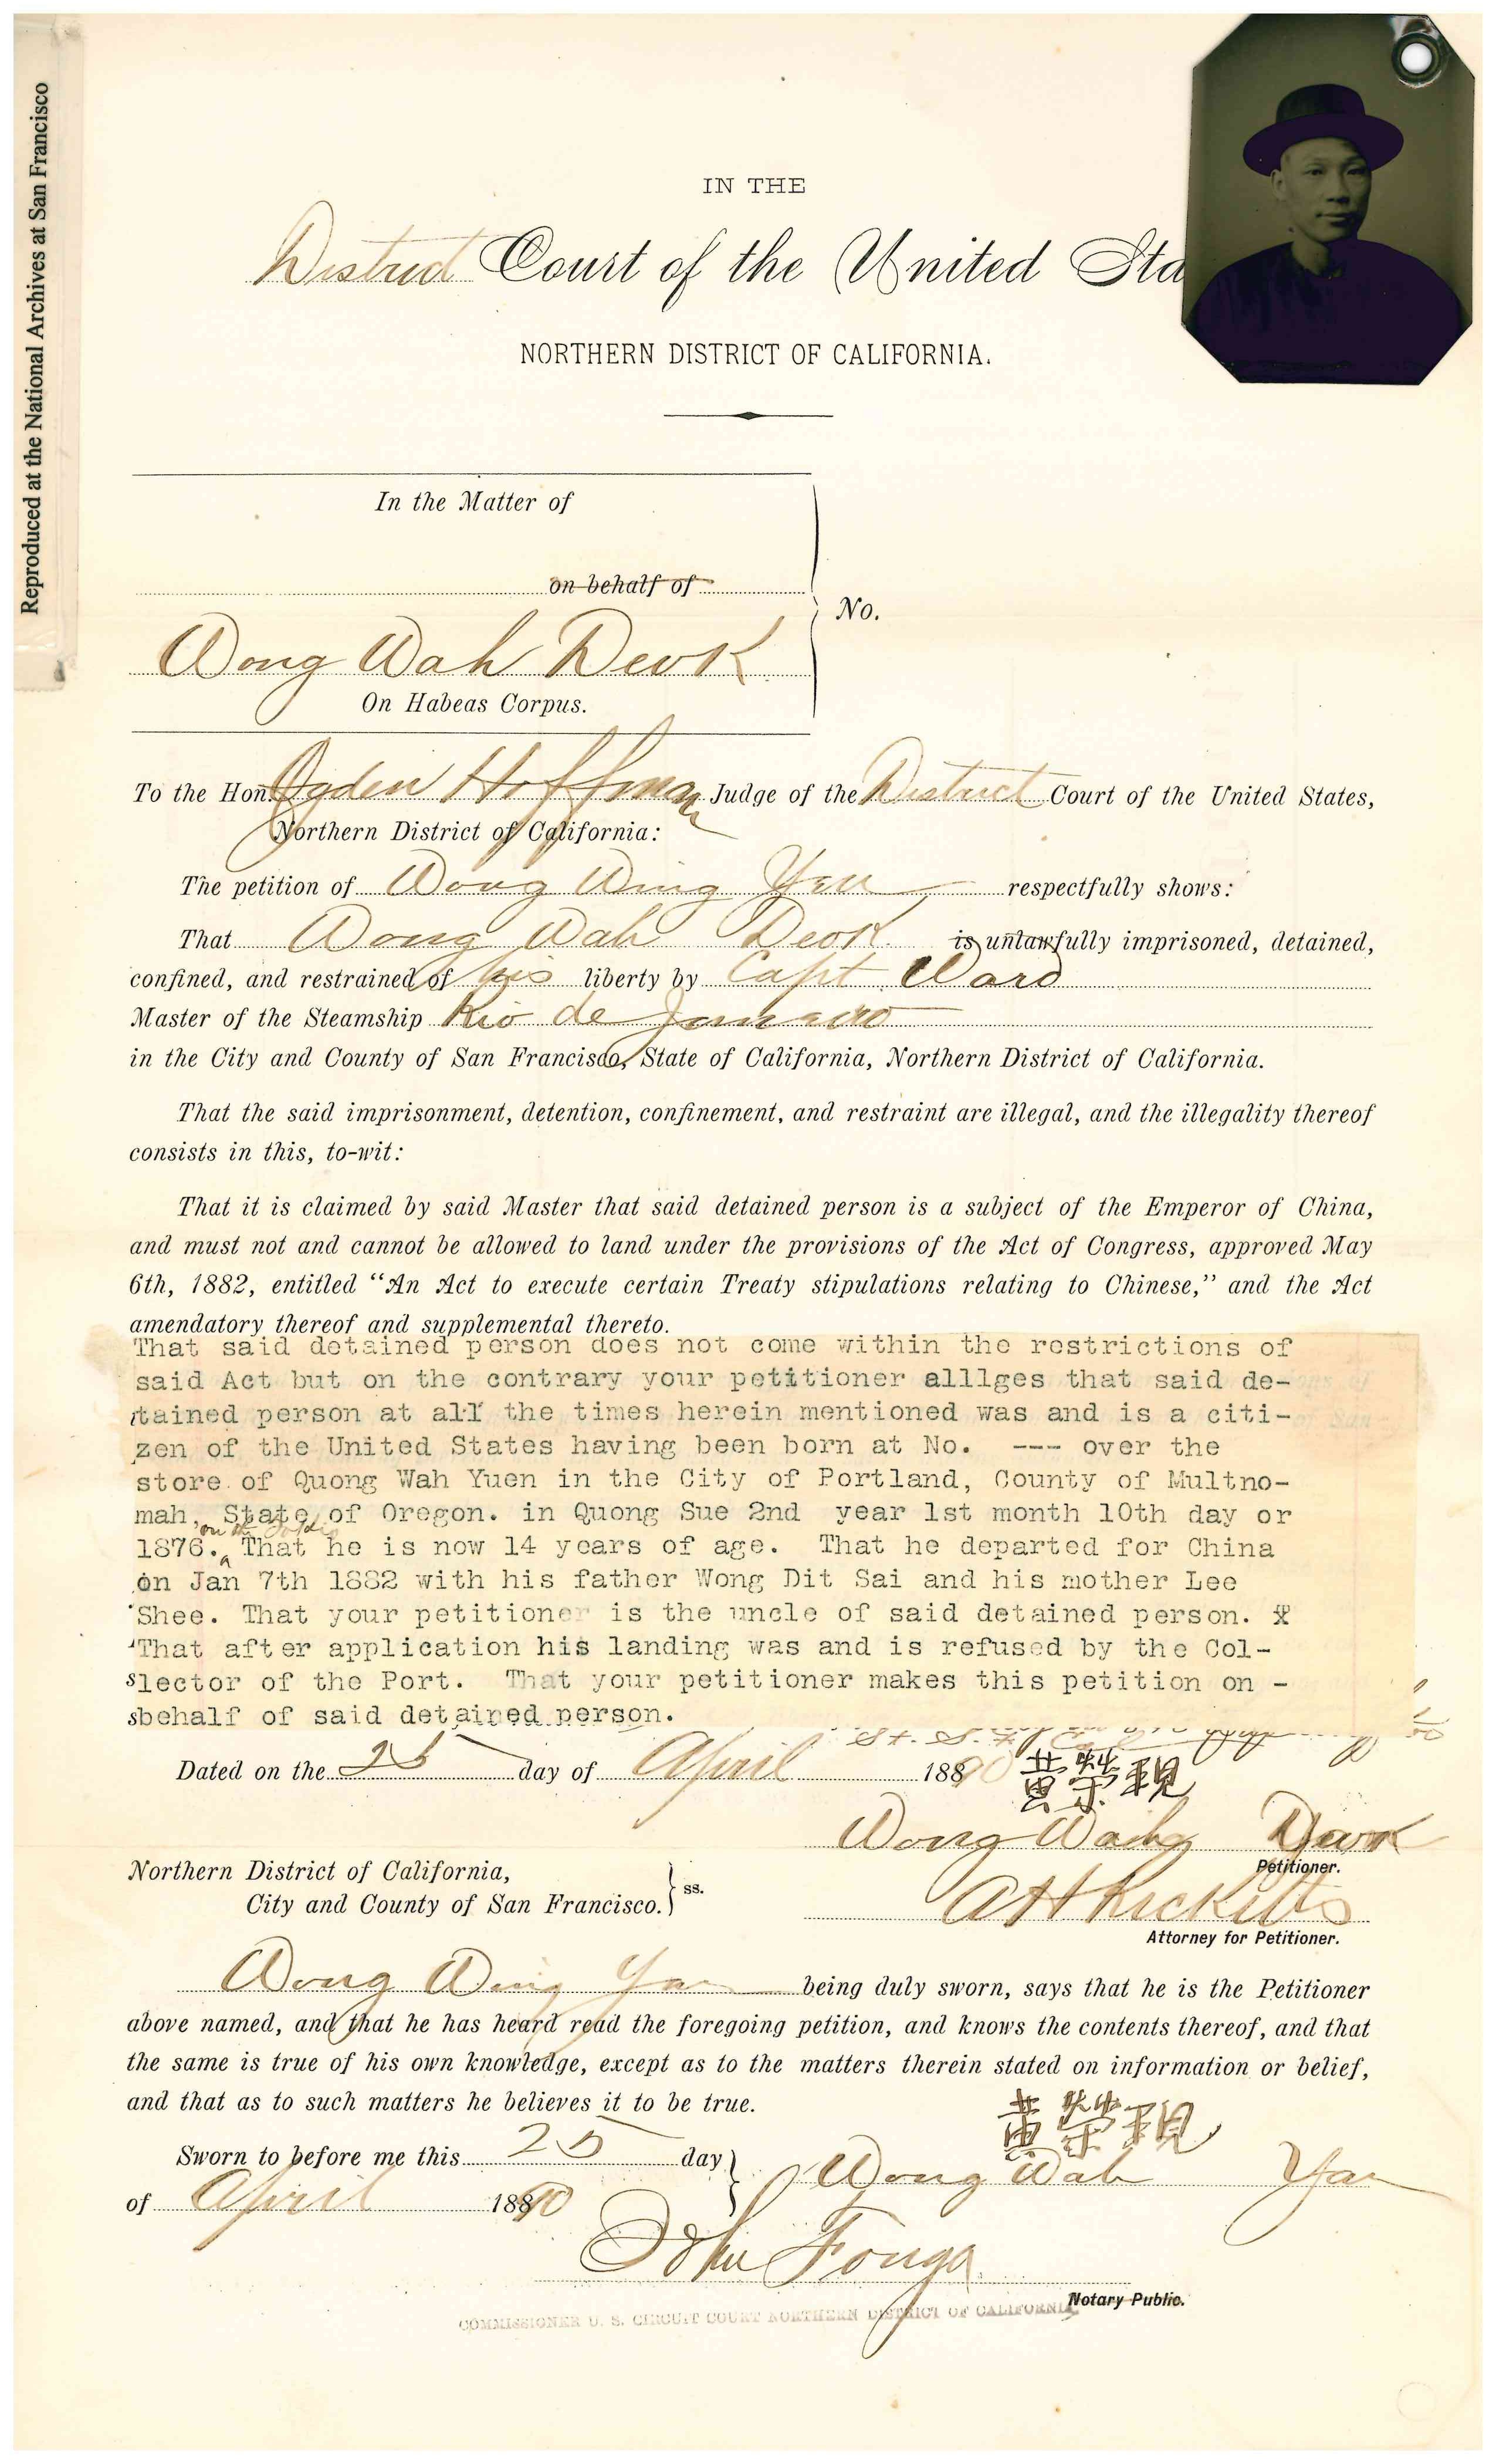 Reproduced at the National Archives at San Francisco
IN THE
District Court of the United Sta
NORTHERN DISTRICT OF CALIFORNIA.
In the Matter of
on behalf of
No.
Wong Wah Deok
On Habeas Corpus.
To the Hon. Ogden Hoffman Judge of the District Court of the United States,
Northern District of California:
The petition of Wong Wing Yen respectfully shows:
That Wong Wah Deok is unlawfully imprisoned, detained,
confined, and restrained of his liberty by Capt Ward
Master of the Steamship Rio de Janeiro
in the City and County of San Francisco, State of California, Northern District of California.
That the said imprisonment, detention, confinement, and restraint are illegal, and the illegality thereof
consists in this, to-wit:
That it is claimed by said Master that said detained person is a subject of the Emperor of China,
and must not and cannot be allowed to land under the provisions of the Act of Congress, approved May
6th, 1882, entitled “An Act to execute certain Treaty stipulations relating to Chinese,” and the Act
amendatory thereof and supplemental thereto.
That said detained person does not come within the restrictions of
said Act but on the contrary your petitioner alllges that said de-
tained person at all the times herein mentioned was and is a citi-
zen of the United States having been born at No. --- over the
store of Quong Wah Yuen in the City of Portland, County of Multno-
mah, State of Oregon. in Quong Sue 2nd year 1st month 10th day or
1876. That he is now 14 years of age. That he departed for China
on Jan 7th 1882 with his father Wong Dit Sai and his mother Lee
Shee. That your petitioner is the uncle of said detained person.
That after application his landing was and is refused by the Col-
lector of the Port. That your petitioner makes this petition on -
behalf of said detained person.
Dated on the 25 day of April 1890 黃榮現
Wong Wah Deok
Petitioner.
Northern District of California,
City and County of San Francisco. ss.
A H Ricketts
Attorney for Petitioner.
Wong Wing Yan being duly sworn, says that he is the Petitioner
above named, and that he has heard read the foregoing petition, and knows the contents thereof, and that
the same is true of his own knowledge, except as to the matters therein stated on information or belief,
and that as to such matters he believes it to be true.
黃榮現
Sworn to before me this 25 day
Wong Wah Yan
of April 1890
John Fouga
Notary Public.
COMMISSIONER U. S. CIRCUIT COURT NORTHERN DISTRICT OF CALIFORNIA